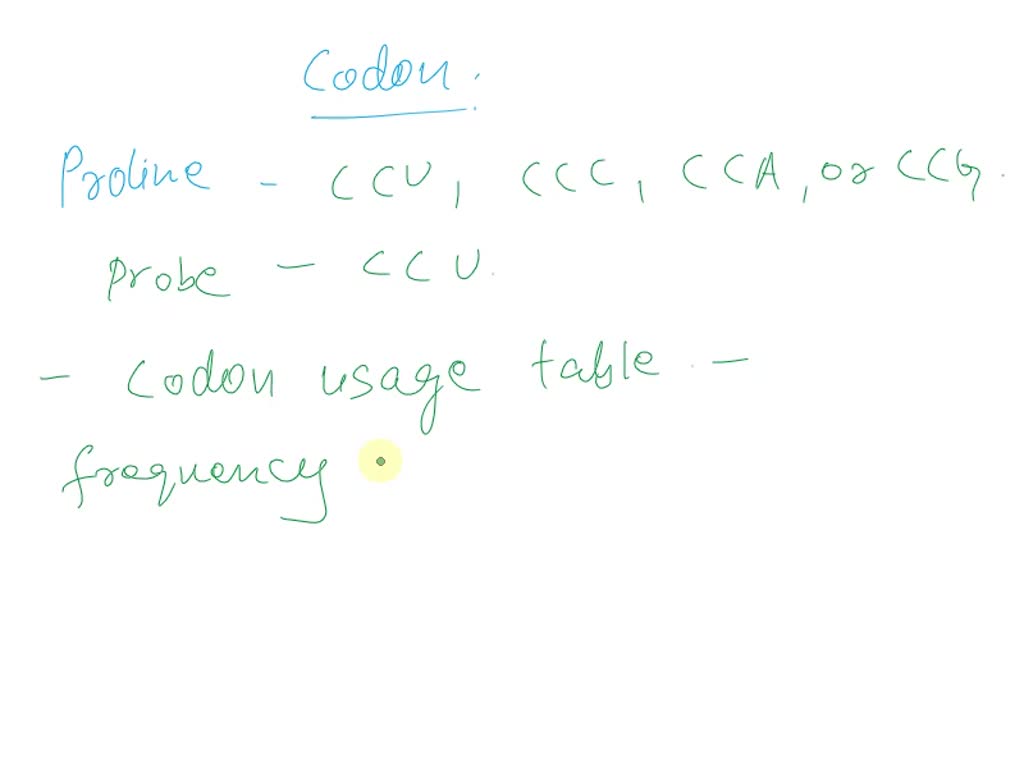 Codon.
Proline - CCU, CCC, CCA, or CCG.
Probe - CCU.
- Codon usage table. -
frequency